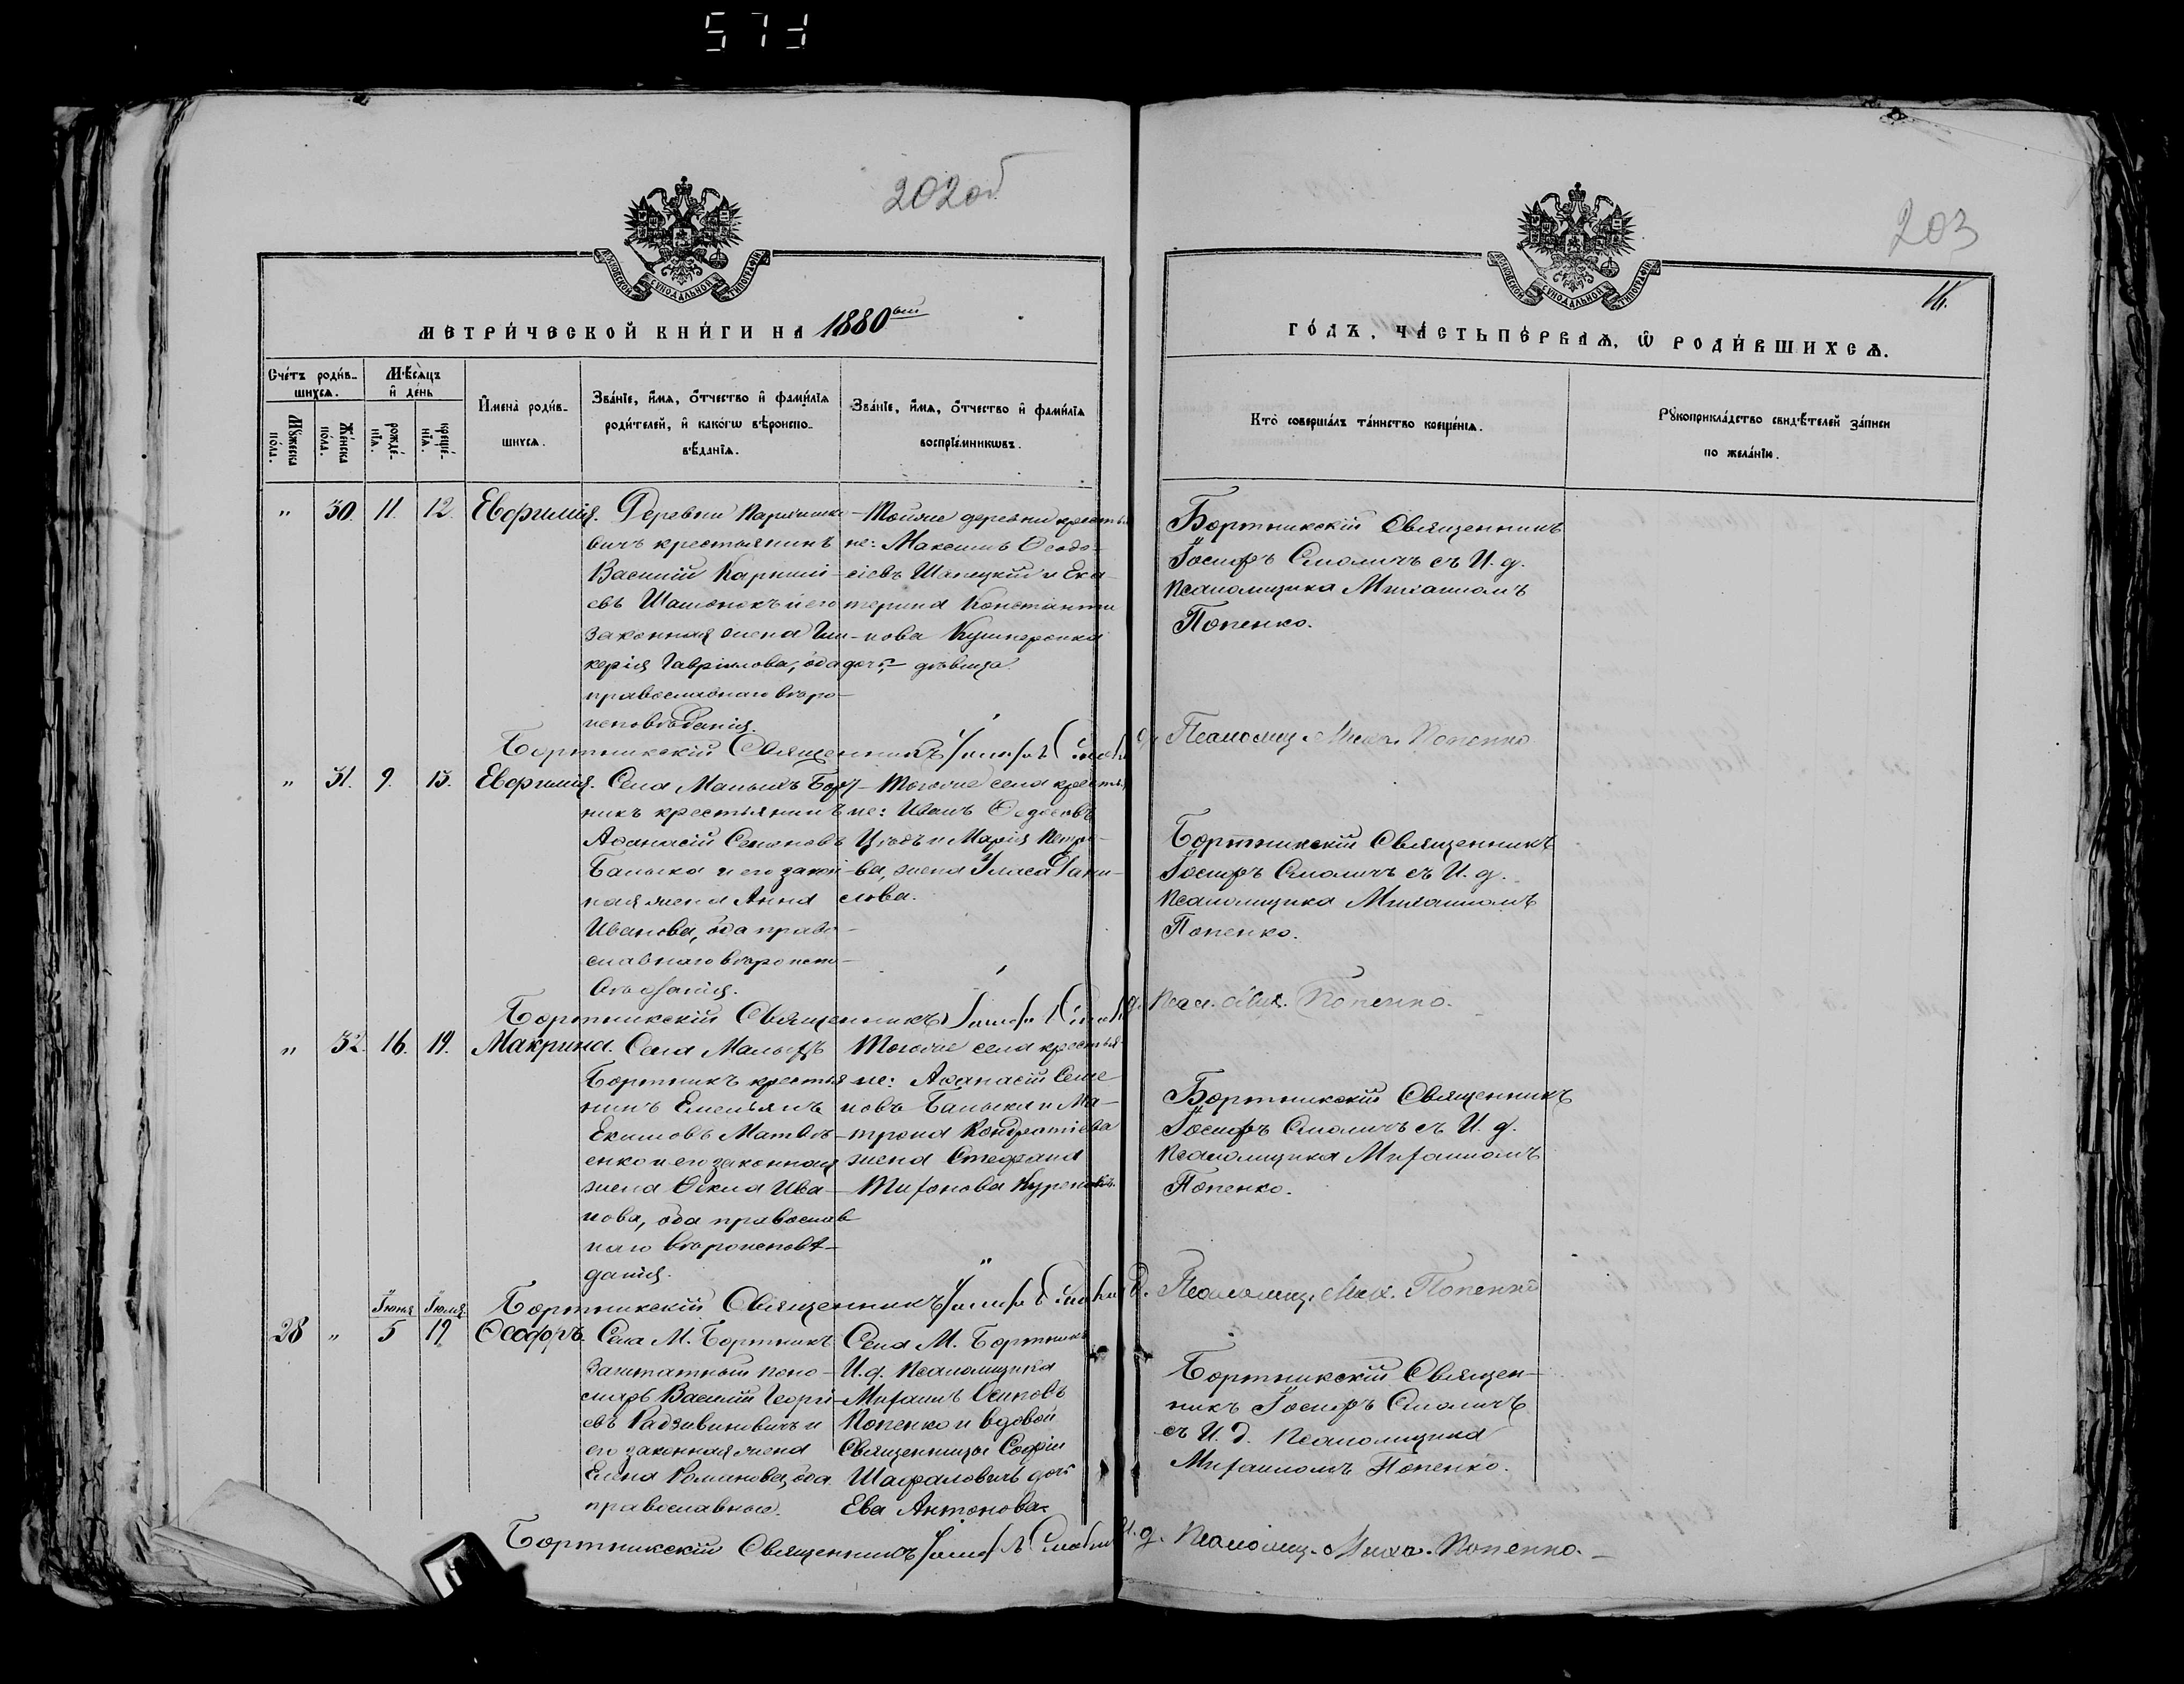 202 об
203
16.
МОСКОВСКОЙ СѴНОДАЛЬНОЙ ТИПОГРАФІИ
МОСКОВСКОЙ СѴНОДАЛЬНОЙ ТИПОГРАФІИ
МЕТРИ́ЧЕСКОЙ КНИ́ГИ НА 1880ый
ГО́ДЪ, ЧА́СТЬ ПЕ́РВАѦ, Ѡ РОДИ́ВШИХСѦ.
Сче́тъ роди́вшихсѧ.
Мꙋ́жеска по́ла.
Же́нска по́ла.
Мѣ́сѧцъ и де́нь
рожде́нїѧ.
креще́нїѧ.
Имена̀ роди́вшихсѧ.
Зва́нїе, и́мѧ, о́тчество и фами́лїѧ
роди́телей, и како́гѡ вѣроиспо-
вѣ́данїѧ.
Зва́нїе, и́мѧ, о́тчество и фами́лїѧ
воспрїе́мникѡвъ.
Кто̀ соверша́лъ та́инство креще́нїѧ.
Рꙋкоприкла́дство свидѣ́телей за́писи
по жела́нїю.
" 30. 11. 12. Евфимія.
Деревни
вичъ крестьянинъ
Василій
евъ и его
законная жена Гли-
керія Гавріилова, оба
православнаго вѣро-
исповѣданія.
Тойже деревни крестья
не: Максимъ Ѳеодо-
сіевъ Шапецкій и Ека-
терина Константи
нова
дочь дѣвица.
Бортникскій Священникъ
Іосифъ Смоличъ съ И. д.
псаломщика Михаиломъ
Попенко.
Бортникскій Священникъ
Псаломщ. Миха. Попенко
" 31. 9. 13. Евфимія.
Села Малыхъ Борт-
никъ крестьянинъ
Аѳанасій Семеновъ
Балыка и его закон-
ная жена Анна
Иванова, оба право-
славнаго вѣроиспо-
вѣданія.
Тогоже села крестья
не: Иванъ
и Марія Петро-
ва, жена Дани-
лова.
Бортникскій Священникъ
Іосифъ Смоличъ съ И. д.
псаломщика Михаиломъ
Попенко.
Бортникскій Священникъ
Псал. Мих. Попенко.
" 32. 16. 19. Макрина.
Села Малыхъ
Бортникъ крестья
нинъ Емельянъ
Екимовъ Матвѣ-
енко и его законная
жена Ѳекла Ива-
нова, оба православ
наго вѣроисповѣ-
данія.
Тогоже села крестья-
не: Аѳанасій Семе
новъ Балыка и Ма-
трона Кондратіева
жена Стефана
Тихонова
Бортникскій Священникъ
Іосифъ Смоличъ съ И. д.
псаломщика Михаиломъ
Попенко.
Бортникскій Священникъ
Псаломщ. Мих. Попенко
Іюня Іюля
28 " 5 19 Ѳеодоръ.
Села М. Бортникъ
Заштатный поно-
марь Василій Георгі-
евъ Радзивиновичъ и
его законная жена
Елена Романова, оба
православные.
Села М. Бортникъ
И. д. псаломщика
Михаилъ Осиповъ
Попенко и вдовой
Священницы Софіи
Шафаловичъ дочь
Ева Антонова.
Бортникскій Священ-
никъ Іосифъ Смоличъ
съ И. д. псаломщика
Михаиломъ Попенко.
Бортникскій Священникъ
И. д. Псаломщ. Миха. Попенко.